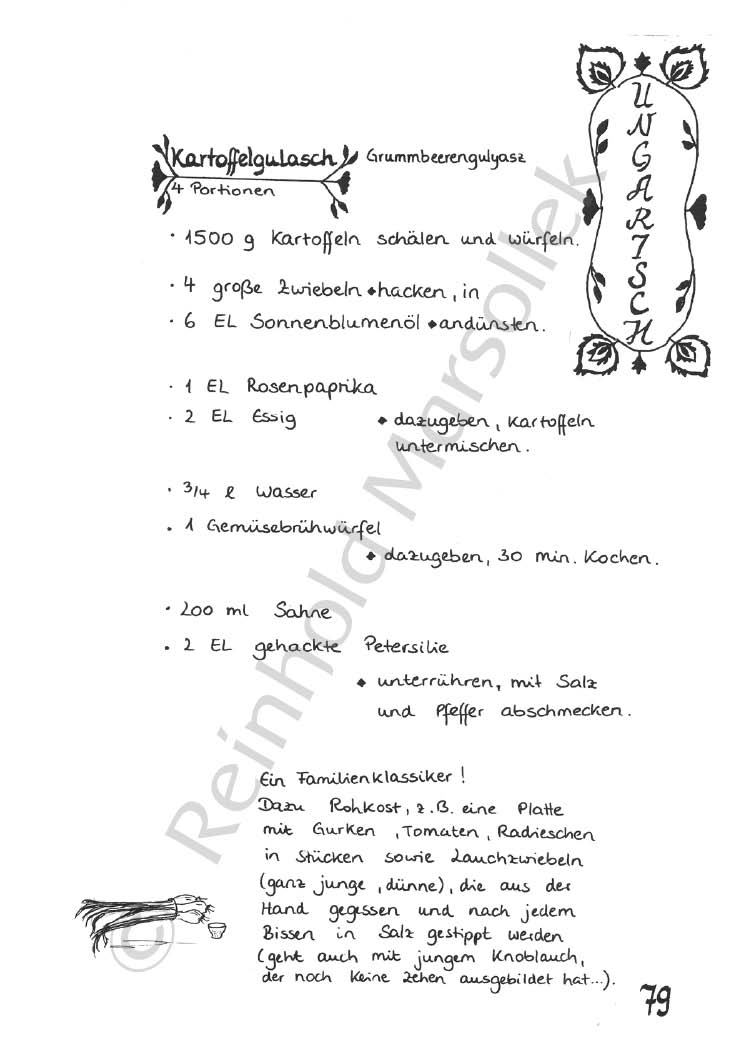 UNGARISCH
Kartoffelgulasch Grummbeerengulyasz
4 Portionen
· 1500 g Kartoffeln schälen und würfeln.
· 4 große Zwiebeln ◆ hacken, in
· 6 EL Sonnenblumenöl ◆ andünsten.
· 1 EL Rosenpaprika
· 2 EL Essig ◆ dazugeben, Kartoffeln
untermischen.
· 3/4 l Wasser
· 1 Gemüsebrühwürfel
◆ dazugeben, 30 min. Kochen.
· 200 ml Sahne
· 2 EL gehackte Petersilie
◆ unterrühren, mit Salz
und Pfeffer abschmecken.
Ein Familienklassiker!
Dazu Rohkost, z.B. eine Platte
mit Gurken, Tomaten, Radieschen
in Stücken sowie Lauchzwiebeln
(ganz junge, dünne), die aus der
Hand gegessen und nach jedem
Bissen in Salz gestippt werden
(geht auch mit jungem Knoblauch,
der noch keine Zehen ausgebildet hat...).
79
© Reinhold Marsollek